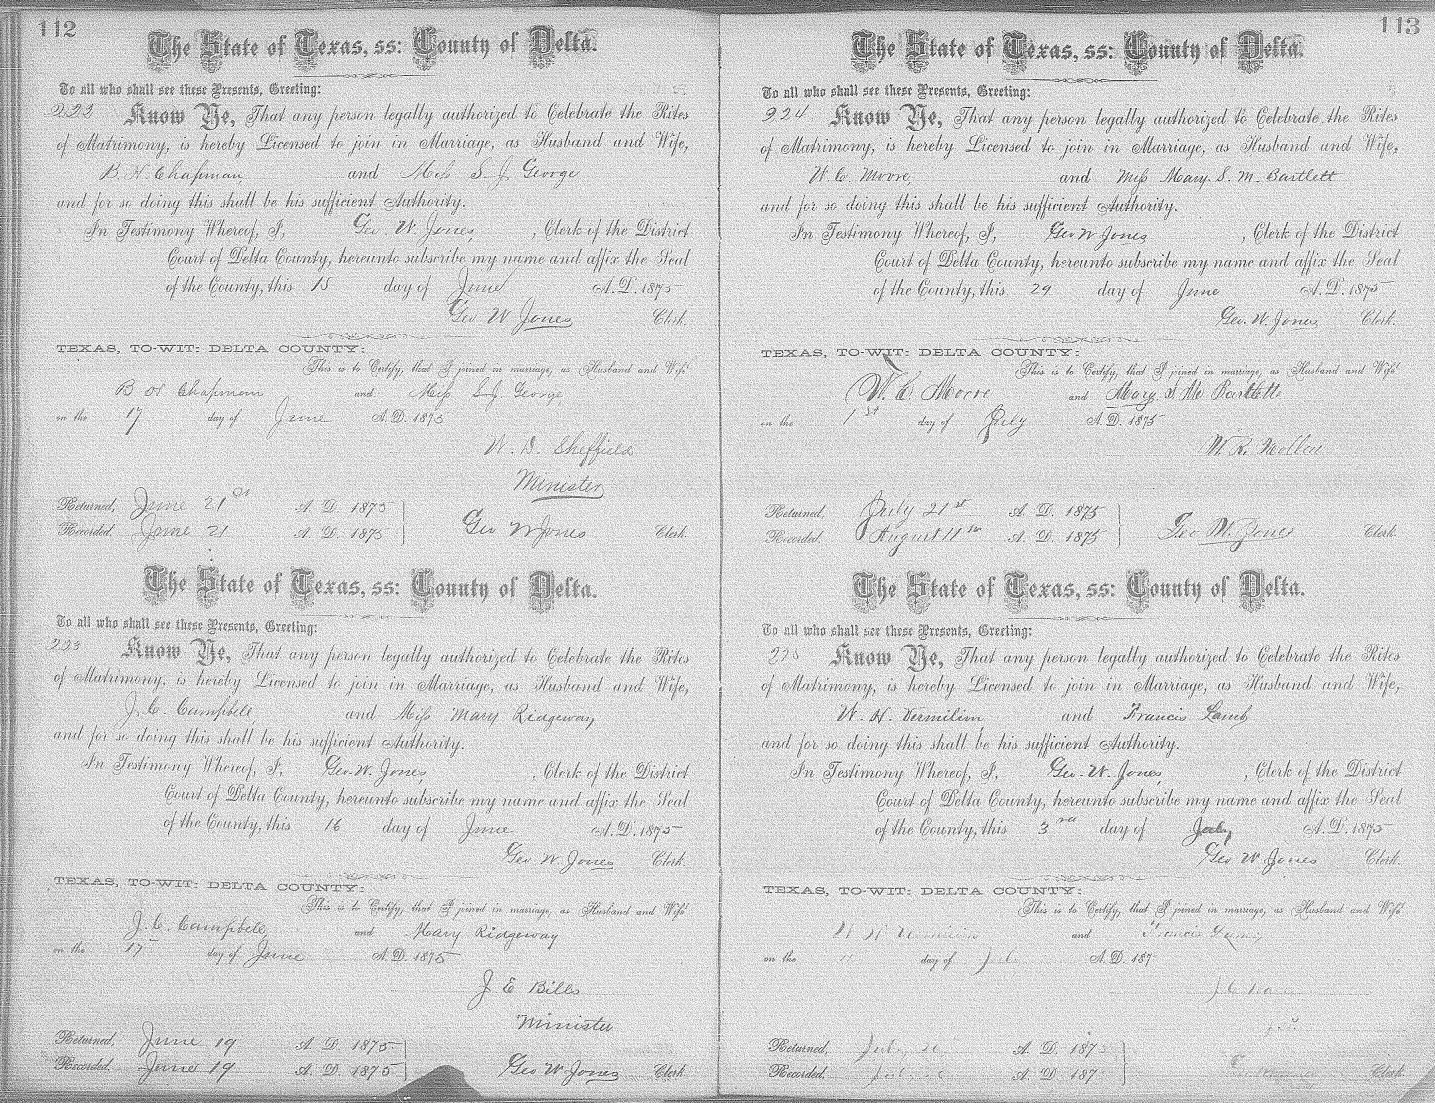 112
The State of Texas, ss: County of Delta.
To all who shall see these Presents, Greeting:
222 Know Ye, That any person legally authorized to Celebrate the Rites
of Matrimony, is hereby Licensed to join in Marriage, as Husband and Wife,
B. H. Chapman and Miss S. J. George
and for so doing this shall be his sufficient Authority.
In Testimony Whereof, I, Geo. W. Jones, , Clerk of the District
Court of Delta County, hereunto subscribe my name and affix the Seal
of the County, this 15 day of June A.D. 1875
Geo W Jones Clerk.
TEXAS, TO-WIT: DELTA COUNTY:
This is to Certify, that I joined in marriage, as Husband and Wife
B H Chapman and Miss S J George
on the 17 day of June A.D. 1875
W. D. Sheffield
Minister
Returned, June 21 A. D. 1875
Recorded, June 21 A. D. 1875 Geo W Jones Clerk.
The State of Texas, ss: County of Delta.
To all who shall see these Presents, Greeting:
223 Know Ye, That any person legally authorized to Celebrate the Rites
of Matrimony, is hereby Licensed to join in Marriage, as Husband and Wife,
J. C. Campbell, and Miss Mary Ridgeway
and for so doing this shall be his sufficient Authority.
In Testimony Whereof, I, Geo. W. Jones , Clerk of the District
Court of Delta County, hereunto subscribe my name and affix the Seal
of the County, this 16 day of June A.D. 1875
Geo W Jones Clerk.
TEXAS, TO-WIT: DELTA COUNTY:
This is to Certify, that I joined in marriage, as Husband and Wife
J. C. Campbell and Mary Ridgeway
on the 17 day of June A.D. 1875
J E Bills
Minister
Returned, June 19 A. D. 1875
Recorded, June 19 A. D. 1875 Geo W Jones Clerk
113
The State of Texas, ss: County of Delta.
To all who shall see these Presents, Greeting:
924 Know Ye, That any person legally authorized to Celebrate the Rites
of Matrimony, is hereby Licensed to join in Marriage, as Husband and Wife,
W. C. Moore, and Miss Mary. S. M. Bartlett
and for so doing this shall be his sufficient Authority.
In Testimony Whereof, I, Geo W Jones , Clerk of the District
Court of Delta County, hereunto subscribe my name and affix the Seal
of the County, this 29 day of June A.D. 1875
Geo. W. Jones Clerk.
TEXAS, TO-WIT: DELTA COUNTY:
This is to Certify, that I joined in marriage, as Husband and Wife
W. C Moore and Mary S M Bartlett
on the 1st day of July A.D. 1875
W. R.
Returned, July 21st A. D. 1875
Recorded, August 11th A. D. 1875 Geo W. Jones Clerk.
The State of Texas, ss: County of Delta.
To all who shall see these Presents, Greeting:
225 Know Ye, That any person legally authorized to Celebrate the Rites
of Matrimony, is hereby Licensed to join in Marriage, as Husband and Wife,
W. H. and Francis Lamb
and for so doing this shall be his sufficient Authority.
In Testimony Whereof, I, Geo. W. Jones, , Clerk of the District
Court of Delta County, hereunto subscribe my name and affix the Seal
of the County, this 3rd day of July A.D. 1875
Geo W Jones Clerk.
TEXAS, TO-WIT: DELTA COUNTY:
This is to Certify, that I joined in marriage, as Husband and Wife
W H and Francis
on the day of A.D. 187
Returned, July A. D. 187
Recorded, A. D. 187 Clerk.